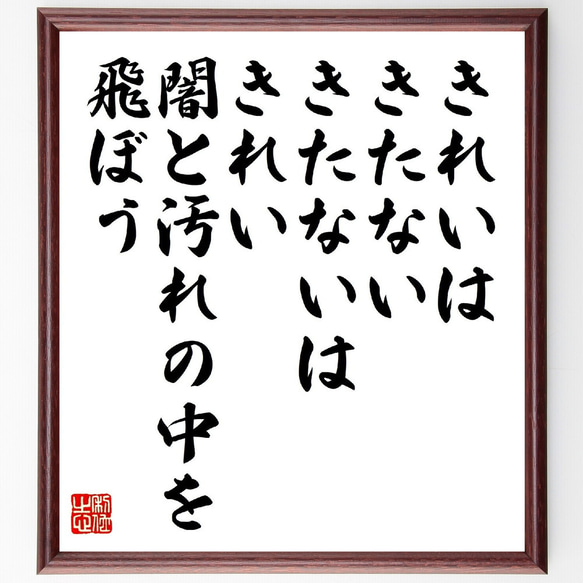 きれいは
きたない
きたないは
きれい
闇と汚れの中を
飛ぼう